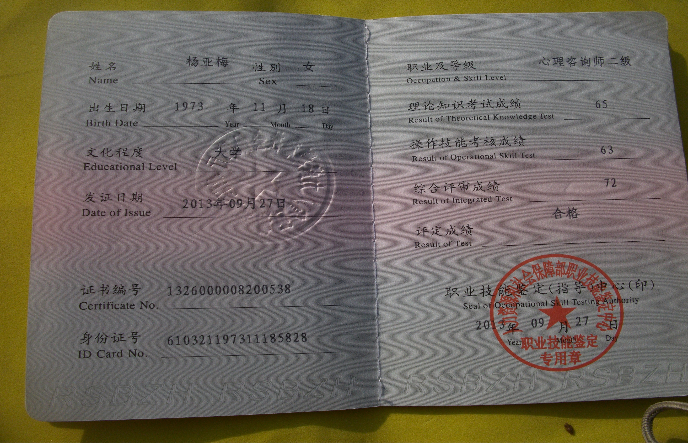 姓名 杨亚梅 性别 女
Name Sex
出生日期 1973 年 11 月 18 日
Birth Date Year Month Day
文化程度 大学
Educational Level
发证日期 2013年09月27日
Date of Issue
证书编号 1326000008200538
Certificate No.
身份证号 610321197311185828
ID Card No.
职业及等级 心理咨询师二级
Occupation & Skill Level
理论知识考试成绩 65
Result of Theoretical Knowledge Test
操作技能考核成绩 63
Result of Operational Skill Test
综合评审成绩 72
Result of Integrated Test
评定成绩 合格
Result of Test
职业技能鉴定(指导)中心(印)
Seal of Occupational Skill Testing Authority
2013 年 09 月 27 日
Year Day
职业技能鉴定
专用章